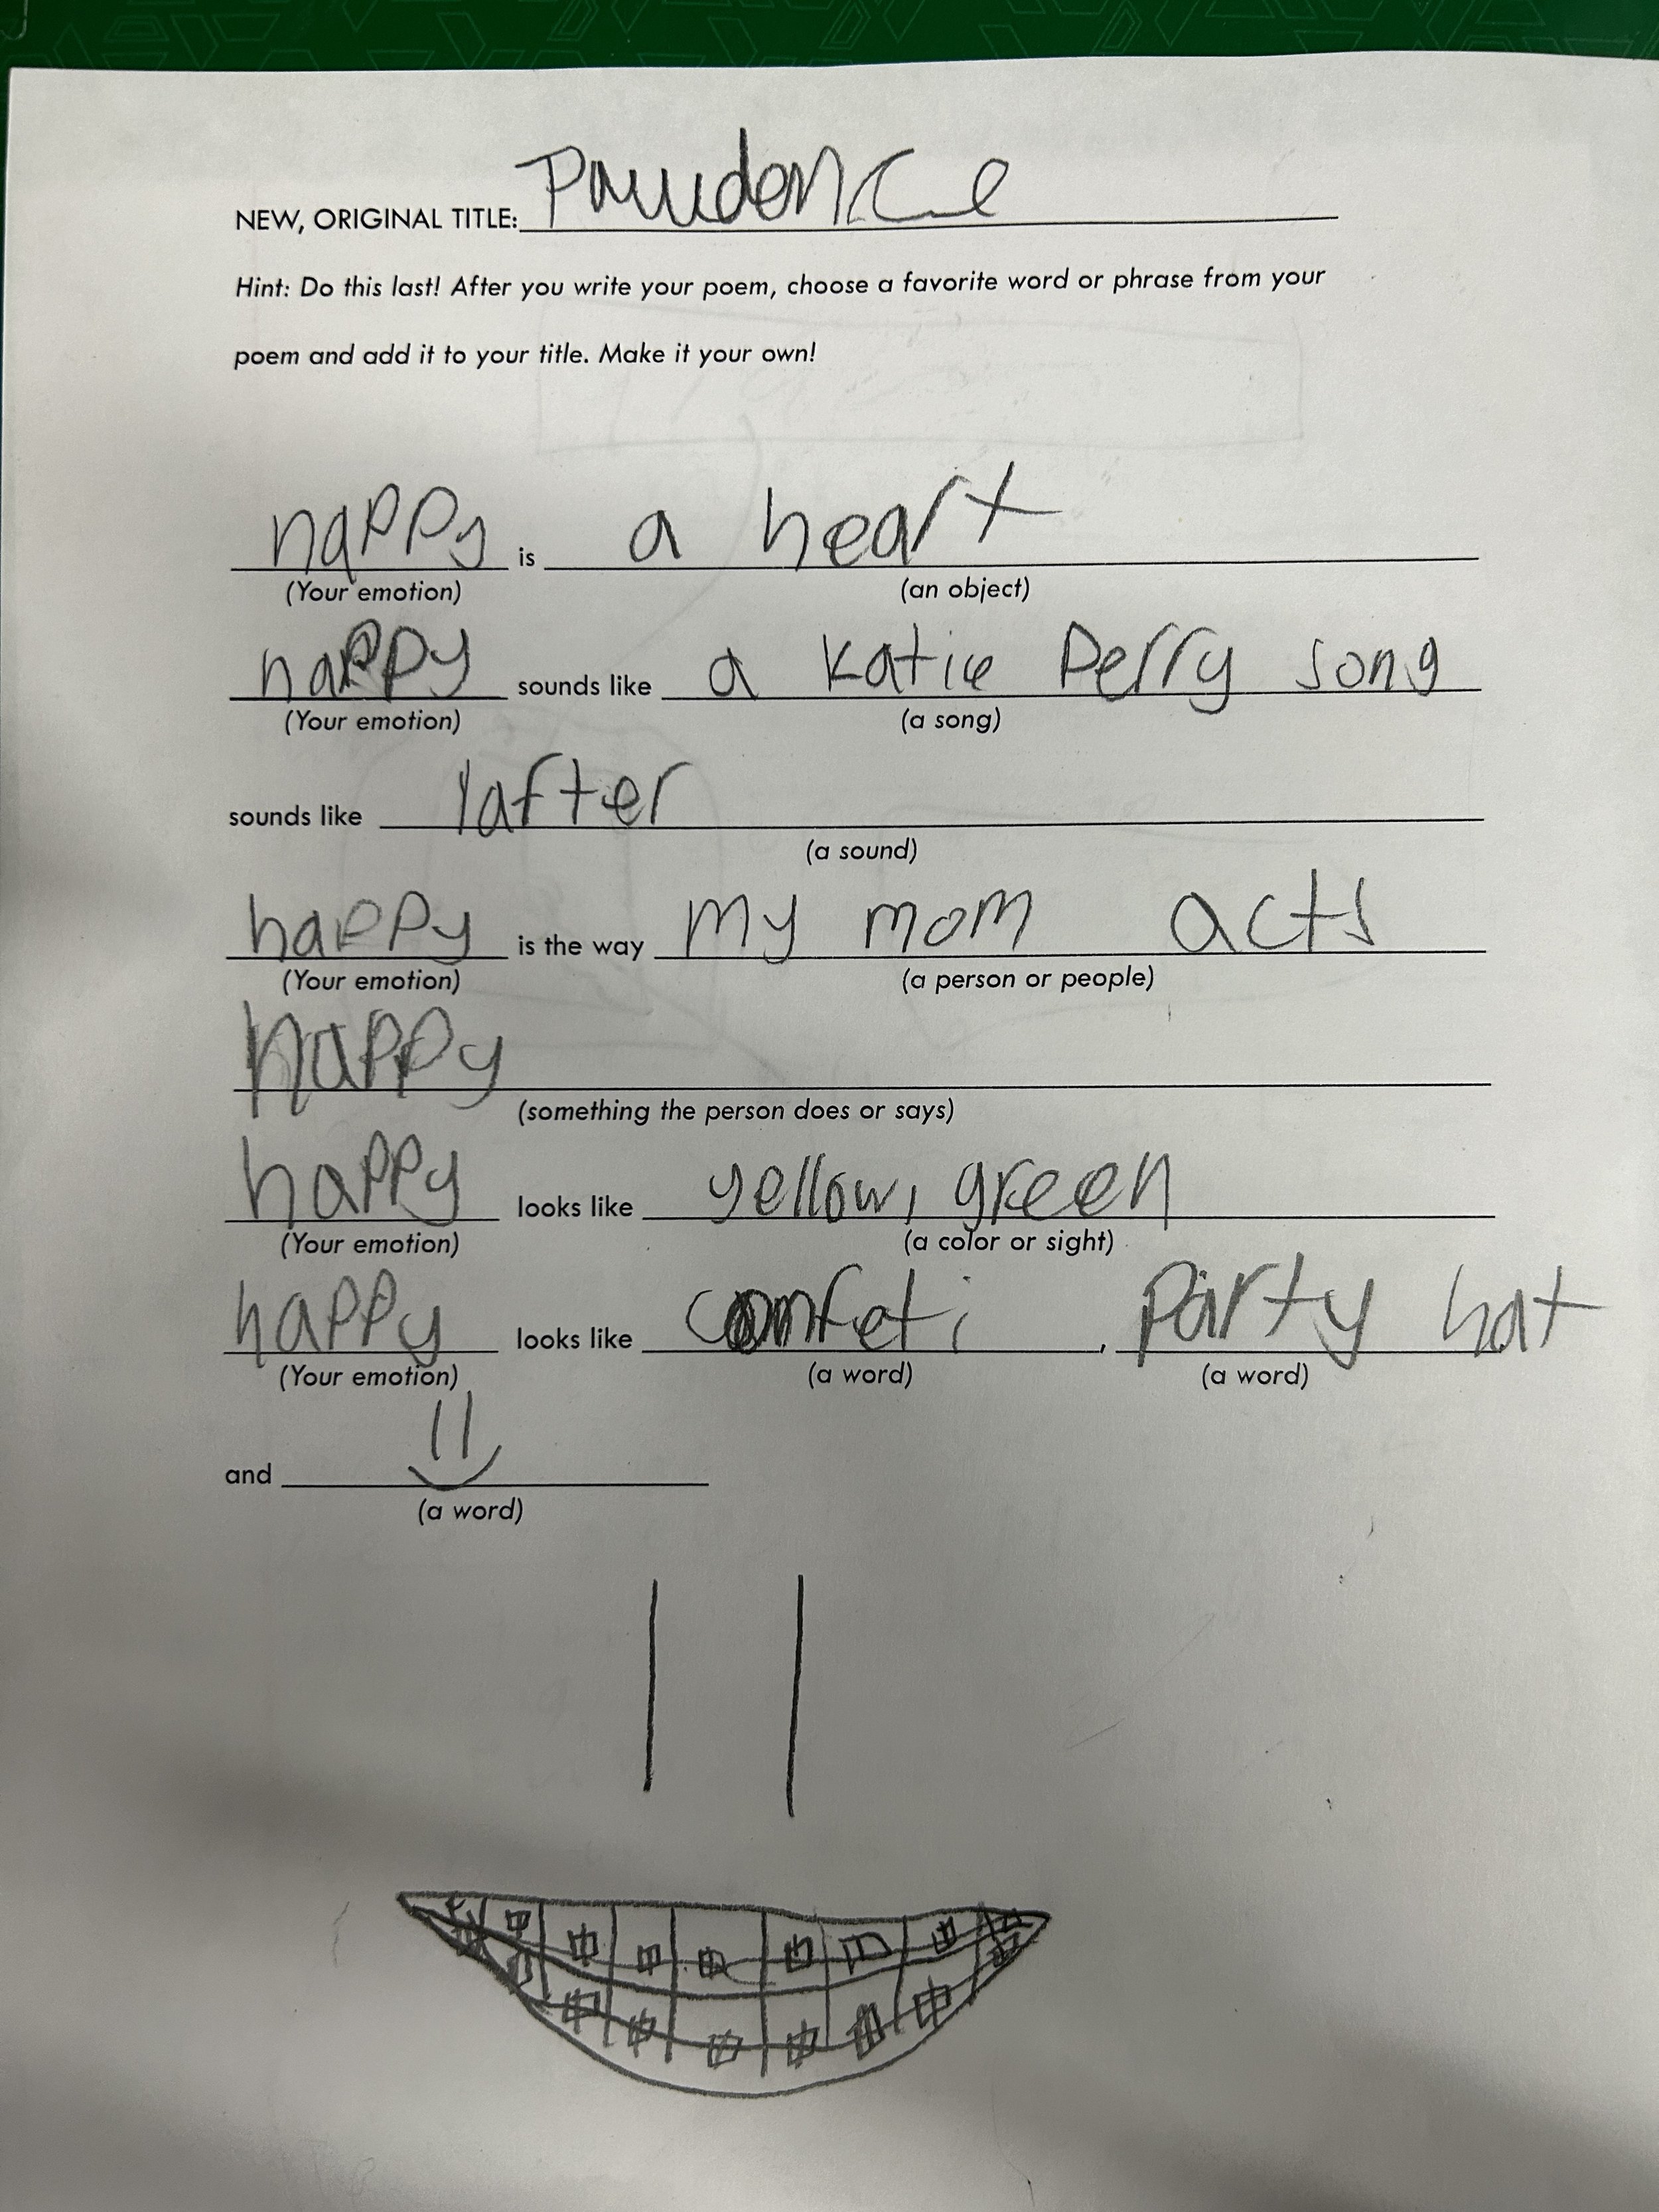 NEW, ORIGINAL TITLE:
Hint: Do this last! After you write your poem, choose a favorite word or phrase from your
poem and add it to your title. Make it your own!
happy is a heart
(Your emotion) (an object)
happy sounds like a Katie Perry song
(Your emotion) (a song)
sounds like lafter
(a sound)
happy is the way my mom acts
(Your emotion) (a person or people)
happy
(something the person does or says)
happy looks like yellow, green
(Your emotion) (a color or sight)
happy looks like confeti, Party hat
(Your emotion) (a word) (a word)
and
(a word)